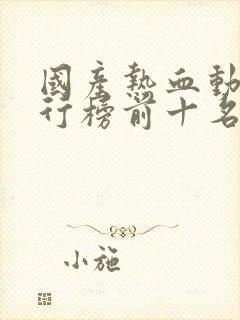 國產熱血動
行榜前十名
小施